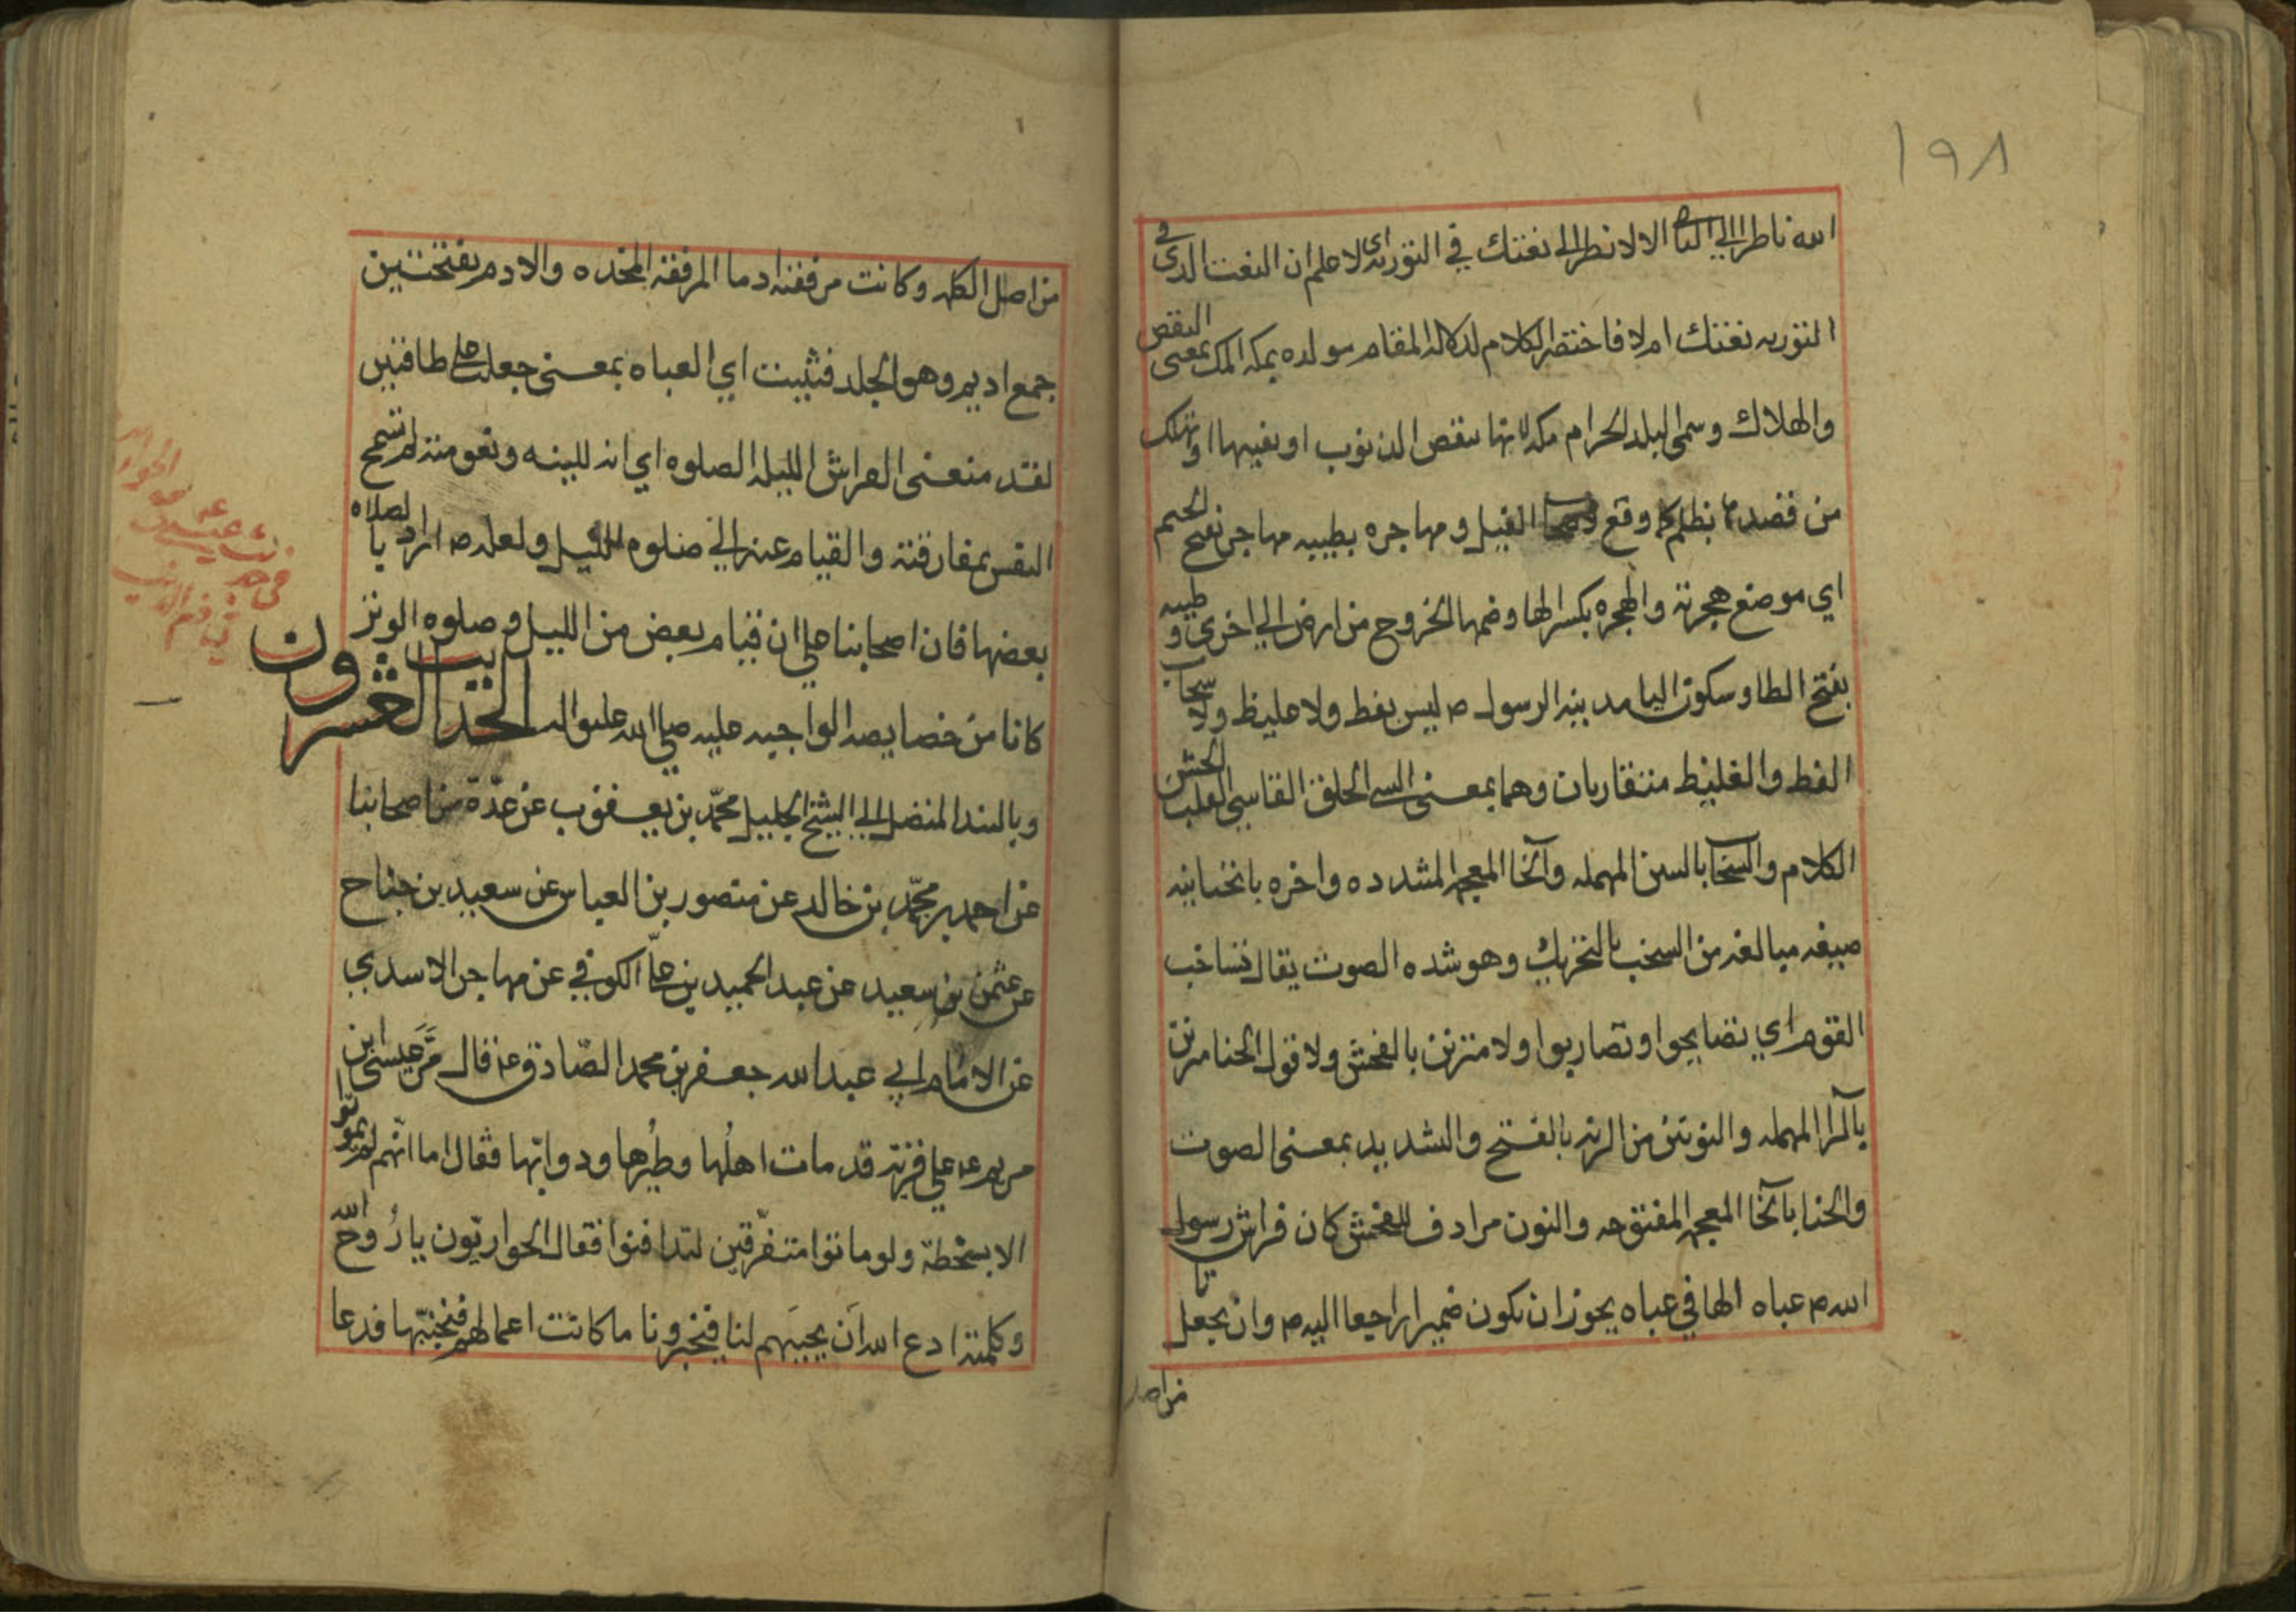 ١٩٨
الله ناظرا الى الا لانظر الى نعتك في التورية اي لاعلم ان النعت الذي في
التوريه نعتك ام لا فاختصر الكلام لدلالة المقام مولده بمكه المك بمعنى النقص
والهلاك وسمى البلد الحرام مكه لانها تنقص الذنوب او تفنيها او تهلك
من قصدها بظلم كما وقع الفيل ومهاجره بطيبه مهاجر بفتح الجيم
اي موضع هجرته والهجره بكسر الها وضمها الخروج من ارض الى اخرى وطيبه
بفتح الطا وسكون اليا مدينة الرسول ص ليس بفظ ولا غليظ ولا سخاب
الفظ والغليظ متقاربان وهما بمعنى السي الخلق القاسي القلب الخشن
الكلام والسخاب بالسين المهمله والخا المعجمه المشدده واخره باتحتانيه
صيغه مبالغه من السخب بالتحريك وهو شده الصوت يقال تساخب
القوم اي تصايحوا وتضاربوا ولا متزين بالفحش ولا قول الخنا مرنن
بالرا المهمله والنونين من الرنه بالفتح والتشديد بمعنى الصوت
والخنا بالخا المعجمه المفتوحه والنون مرادف للفحش كان فراش رسول
الله ص عباه الها في عباه يجوز ان تكون ضميرا راجعا اليه ص وان يجعل تا
من اصل
من اصل الكلمه وكانت مرفقته ادما المرفقه المخده والادم بفتحتين
جمع اديم وهو الجلد فثنيت اي العباه بمعنى جعلت على طاقتين
لقد منعنى الفراش الليله الصلوه اي انه للينه ونعومته لم تسمح
النفس بمفارقته والقيام عنه الى صلوه الليل ولعله ص اراد بالصلاه
بعضها فان اصحابنا على ان قيام بعض من الليل وصلوه الوتر
كانا من خصايصه الواجبه عليه صلى الله عليه واله الحديث الحادي والعشرون
وبالسند المتصل الى الشيخ الجليل محمّد بن يعقوب عن عدّة من اصحابنا
عن احمد بن محمّد بن خالد عن منصور بن العباس عن سعيد بن جناح
عن عثمن بن سعيد عن عبد الحميد بن على الكوفي عن مهاجر الاسدي
عن الامام ابي عبد الله جعفر بن محمد الصّادق ع قال مَرَّ عيسى ابن
مريم ع على قرية قد مات اهلُها وطيرُها ودوابّها فقال اما انّهم لم يموتوا
الا بسخطة ولو ماتوا متفرّقين لتدافنوا فقال الحواريّون يا رُوح الله
وكلمته ادع الله اَن يحييَهم لنا فيخبرونا ما كانت اعمالهم فنجتنبها فدعا